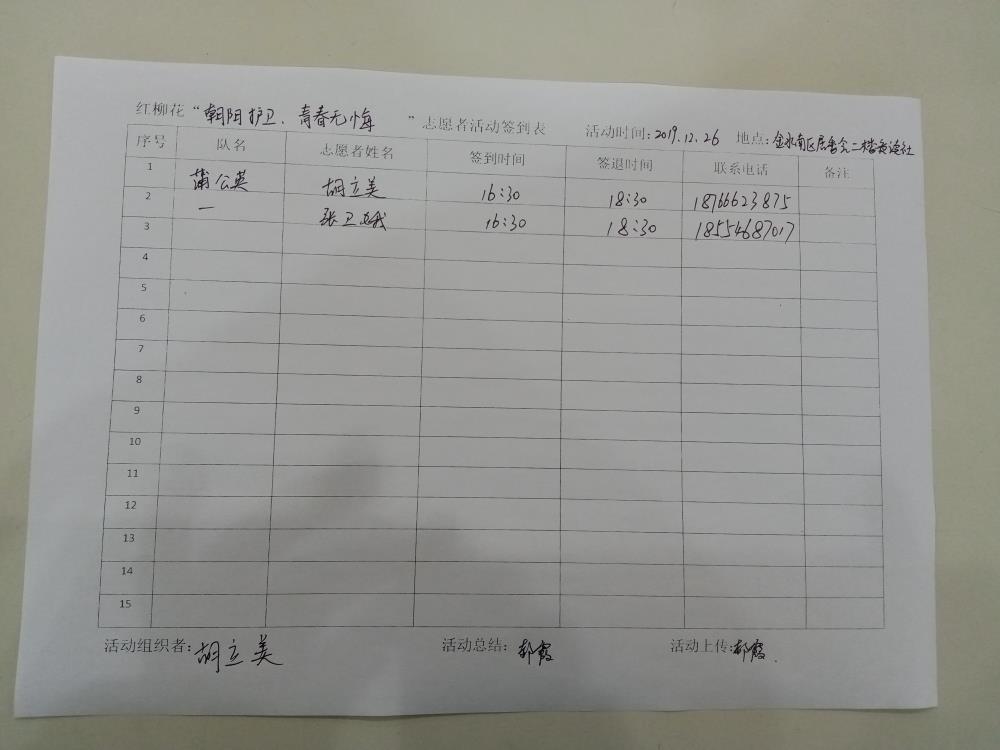 红柳花“朝阳护卫、青春无悔”志愿者活动签到表 活动时间:2019.12.26 地点:金水南区居委会二楼
序号 队名 志愿者姓名 签到时间 签退时间 联系电话 备注
1 蒲公英 胡立美 16:30 18:30 18766623875
2 一 张卫娥 16:30 18:30 18554687017
3
4
5
6
7
8
9
10
11
12
13
14
15
活动组织者:胡立美 活动总结:郝霞 活动上传:郝霞.